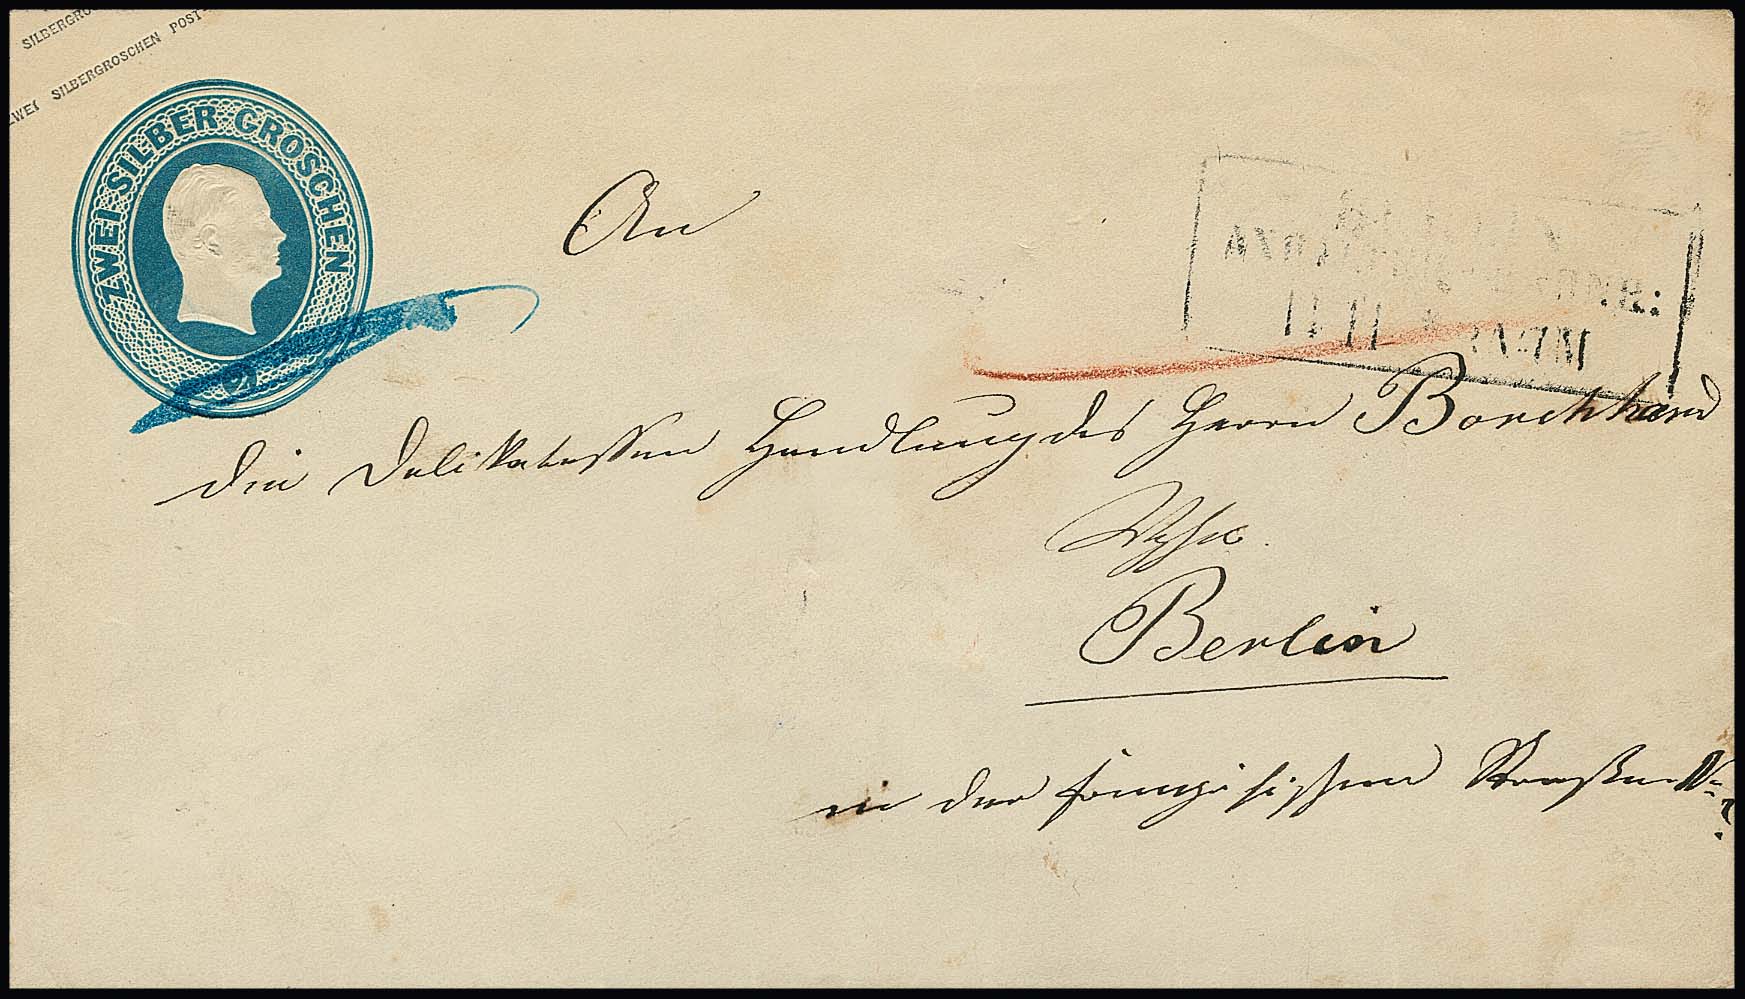 SILBERGRO
ZWEI SILBERGROSCHEN POST-
ZWEI SILBER-GROSCHEN
2
An
die Delikatessen Handlung des Herrn Borchhard
Berlin
in der französischen Straße No